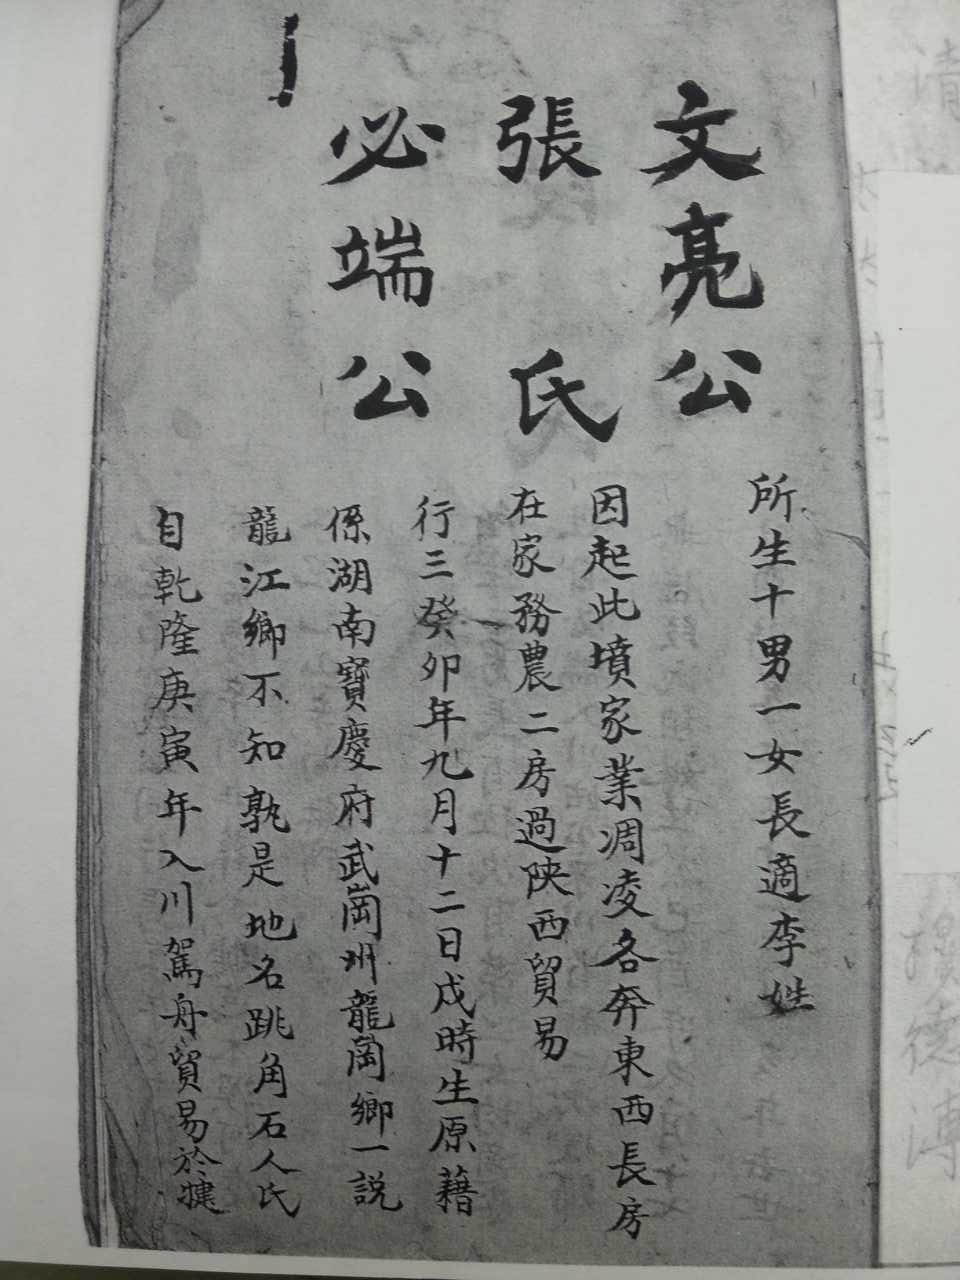 文亮公
所生十男一女長適李姓
因起此墳家業凋凌各奔東西長房
張氏
在家務農二房過陝西貿易
行三癸卯年九月十二日戌時生原藉
必端公
係湖南寶慶府武岡州龍崗鄉一説
龍江鄉不知孰是地名跳角石人氏
自乾隆庚寅年入川駕舟貿易於犍